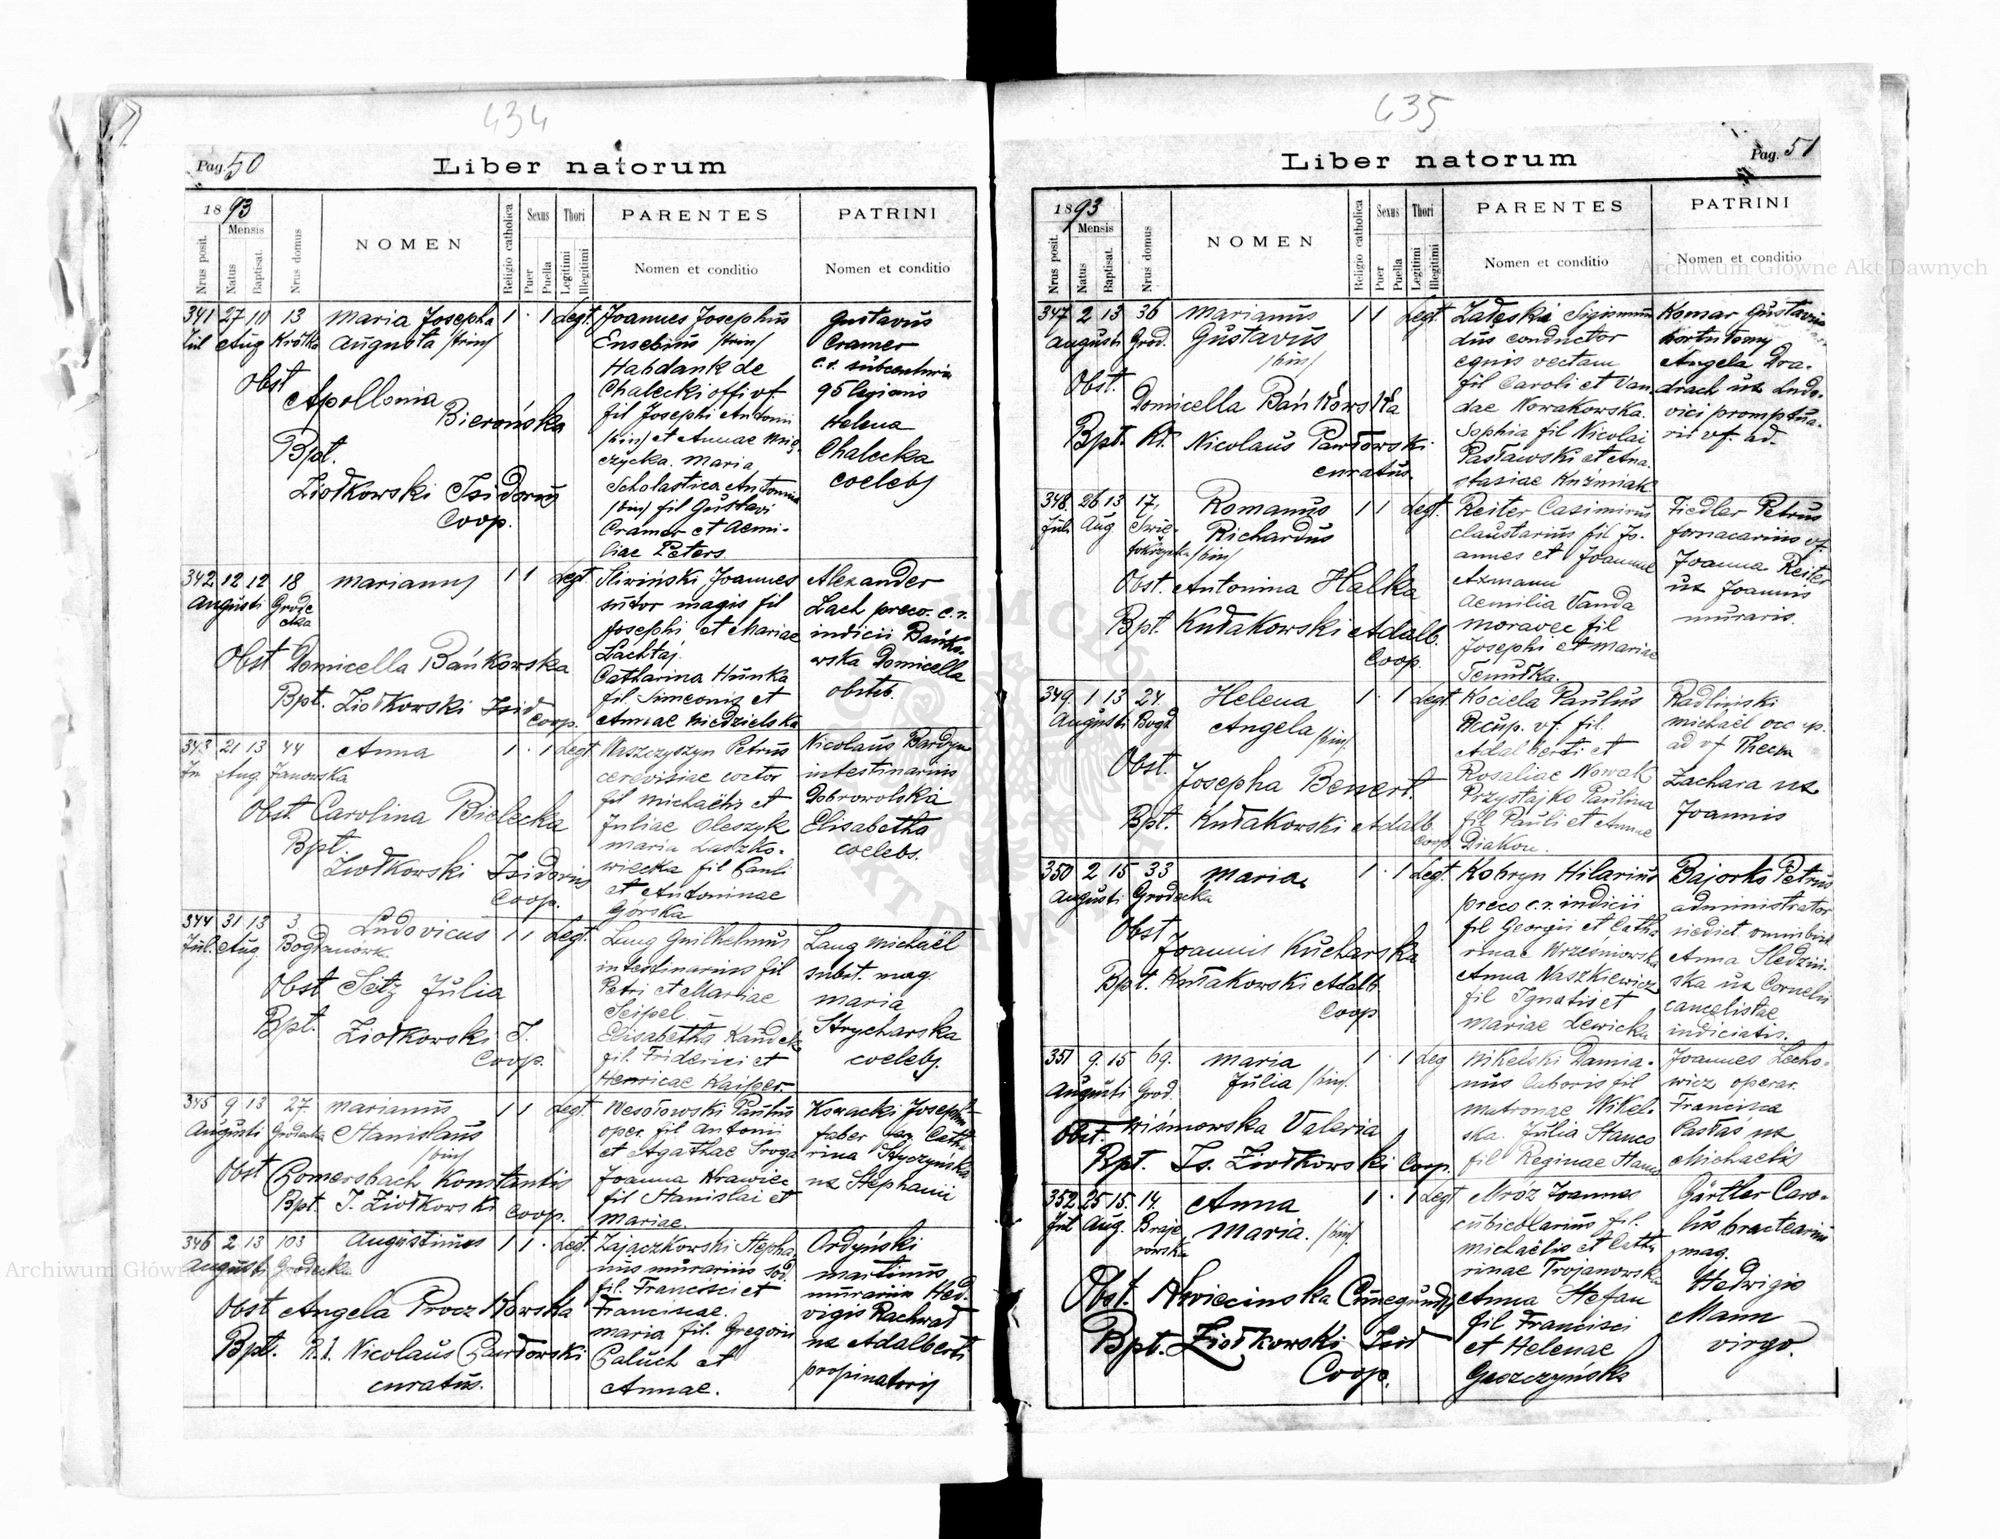 434
Pag. 50
Liber natorum
1893
Mensis
Nrus posit.
Natus
Baptisat.
Nrus domus
NOMEN
Religio catholica
Sexus
Puer
Puella
Thori
Legitimi
Illegitimi
PARENTES
Nomen et conditio
PATRINI
Nomen et conditio
341 27 10 13 Maria Josepha 1 · 1 Legt.
Jul Aug Krótka Augusta /trin/
Obst
Apollonia
Bierońska
Bpt.
Ziołkowski Isidorus
Coop.
Joannes Josephus
Eusebius /trin/
Habdank de
Chalecki offi vf.
fil Josephi Antonii
/bin/ et Annae
czycka. Maria
Scholastica Antonina
/bin/ fil Gustavi
Cramer et Aemi-
liae Peters.
Gustavus
Cramer
c.r.
95 legionis
Helena
Chalecka
coelebs
342 12 12 18 Marianus 1 1 Legt.
Augusti Grode
cka
Obst Domicella Bańkowska
Bpt. Ziołkowski Isid
Coop.
Śliwiński Joannes
sutor magis fil
Josephi et Mariae
Lachtaj
Catharina Hunka
fil. Simeonis et
Annae Niedzielska
Alexander
Lach preco. c.r.
indicii Bańko-
wska Domicella
obstet.
343 21 13 44 Anna 1 · 1 Legt
Aug. Janowska
Obst. Carolina Bielecka
Bpt.
Ziołkowski Isidorus
Coop.
Waszczyszyn Petrus
cerevisiae coctor
fil Michaëlis et
Juliae Oleszyk
Maria Laszko-
wiecka fil Pauli
et Antoninae
Górska
Nicolaus Bardyn
intestinarius
Dobrowolska
Elisabetha
coelebs.
344 31 13 3 Ludovicus 1 1 Legt.
Jul. Aug Bogdanówk.
Obst Setz Julia
Bpt. Ziołkowski I.
Coop.
Lang Guilhelmus
intestinarius fil
Petri et Mariae
Seipel. –
Elisabetha
fil. Friderici et
Henricae Kaiser.
Lang Michaël
subst. mag.
Maria
Strycharska
coelebs.
345 9 13 27. Marianus 1 1 Legt
Augusti Grodecka Stanislaus
/bin/
Obst Pomersbach Konstantis
Bpt. I. Ziołkowski Coop.
Wesołowski Paulus
oper. fil Antonii
et Agathae Sroga
Joanna Krawiec
fil Stanislai et
Mariae.
Kowacki Joseph
faber Cath
rina Styczyńska
ux Stephanii
346 2 13 103 Augustinus 1 1 · Legt.
Augusti Grodecka
Obst Angela Proczkowska
Bpt. R.l. Nicolaus Pawłowski
curatus.
Zajączkowski Stepha-
nus murarius sod
fil. Francisci et
Franciscae.
Maria fil. Gregorii
Paluch et
Annae.
Ordyński
Martinus
murarius Hed-
vigis Rachwał
ux Adalberti
propinatoris
435
Pag. 51
Liber natorum
1893
Mensis
Nrus posit.
Natus
Baptisat.
Nrus domus
NOMEN
Religio catholica
Sexus
Puer
Puella
Thori
Legitimi
Illegitimi
PARENTES
Nomen et conditio
PATRINI
Nomen et conditio
347 2 13 36 Marianus 1 1 Legt.
Augusti Grod. Gustavus
/bin/
Obst.
Domicella Bańkowska
Bpt. Nicolaus Pawłowski
curatus.
Załęski Sigismun
dus conductor
equis vectam
fil Caroli et Van
dae Nowakowska.
Sophia fil Nicolai
Pasławski et Ana
stasiae Kuźmiak
Komar Gustavus
Angela Dra-
drach ux Ludo-
vici promptua-
rii vf. ad.
348. 26 13 17, Romanus 1 1 Legt.
Jul. Aug Richardus
/bin/
Obst. Antonina Halka
Bpt. Kułakowski Adalb.
Coop.
Reiter Casimirus
claustarius fil Jo-
annes et Joannae
Axmann
Aemilia Vanda
Moravec fil
Josephi et Mariae
Fiedler Petrus
fornacarius vf.
Joanna Reiter
ux Joannis
muraris.
349. 1 13 24. Helena 1 · 1 Legt.
Augusti Bogd Angela /bin/
Obst.
Josepha Benert.
Bpt. Kułakowski Adalb.
Coop.
Kociela Paulus
Occup. vf. fil.
Adalberti et
Rosaliae Nowak
Przystajko Paulina
fil Pauli et Annae
Diakon.
Radliński
Michaël occ up.
ad vf Thecla
Zachara ux
Joannis
350 2 15 33 Maria 1 · 1 Legt.
Augusti Grodecka
Obst
Joannis Kucharska
Bpt. Kułakowski Adalb.
Coop
Kobryn Hilarius
preco c.r. indicii
fil Georgii et Catha
rinae Wrześniowska
Anna Waszkiewicz
fil Ignatii et
Mariae Lewicka
Bajorko Petrus
administrator
Anna Sledziń-
ska ux Cornelii
cancelistae
indiciatis.
351 9. 15 69. Maria 1 · 1 Leg
Augusti Grod. Julia /bin/.
Obst. Wiśniowska Valeria
Bpt. Is. Ziołkowski Coop.
Nikelski Damia-
nus laboris fil
matronae Nikel-
ska. Julia Stanco
fil Reginae Stanco
Joannes Lecho-
wicz operar.
Francisca
Pastas ux
Michaelis
352 25 15. 14. Anna 1 · 1 Legt
Jul Aug. Braje Maria. /bin/
rowska
Obst. Kwiecinska Cunegunda
Bpt. Ziołkowski Isid
Coop.
Mróz Joannes
cubicularius fil.
Michaëlis et Catha
rinae Trojanowska
Anna Stefan
fil. Francisci
et Helenae
Goszczyńska
Gärtler Caro-
lus bractearius
mag.
Hedvigis
Mann
virgo.
Archiwum Główne Akt Dawnych
Archiwum Główne